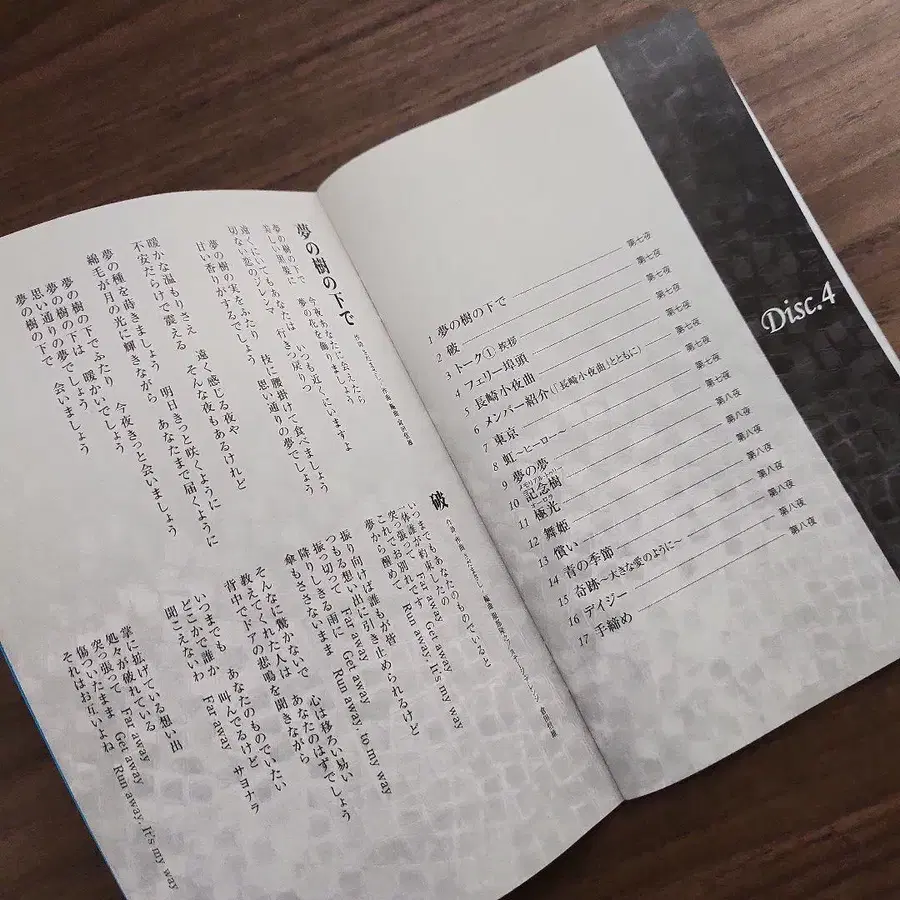 Disc.4
1 夢の樹の下で 第七夜
2 破 第七夜
3 トーク① 挨拶 第七夜
4 フェリー埠頭 第七夜
5 長崎小夜曲 第七夜
6 メンバー紹介(「長崎小夜曲」とともに) 第七夜
7 東京 第七夜
8 虹〜ヒーロー〜 第七夜
9 夢の夢 第八夜
10 記念樹 第八夜
11 極光 第八夜
12 舞姫 第八夜
13 償い 第八夜
14 青の季節 第八夜
15 奇跡〜大きな愛のように〜 第八夜
16 デイジー 第八夜
17 手締め 第八夜
夢の樹の下で
夢の樹の下で 今夜あなたに会えたら
美しい果実に 夢の花を飾りましょう
遠くにいてもあなたは いつも近くにいますよ
切ない恋のジレンマ 行きつ戻りつ
夢の樹の実をふたり 枝に腰掛けて食べましょう
甘い香りがするでしょう 思い通りの夢でしょう
暖かな温もりさえ 遠く感じる夜や
不安だらけで震える そんな夜もあるけれど
夢の種を蒔きましょう 明日きっと咲くように
綿毛が月の光に輝きながら あなたまで届くように
夢の樹の下でふたり 今夜きっと会いましょう
夢の樹の下は 暖かいでしょう
思い通りの夢でしょう
夢の樹の下で 会いましょう
破
いつもあなたのものでいると
いつまで約束 Far away Get away
一体誰がて別れです Run away, It's my way
突っ張ってお
これから醒めて
夢
振り向けば誰もが皆
つもる想い出に引き止められるけど
振っ切って雨に Far away Get away
降りしきるなかを Run away, to my way
傘もささないまま
そんなに驚かないで 心は移ろい易い
教えてくれた人は あなたのはずでしょう
背中でドアの悲鳴を聞きながら
いつまでも あなたのものでいたい
どこかで誰か 叫んでるけど
聞こえないわ Far away サヨナラ
掌に拡げている想い出
処々が破れている Far away
突っ張って Get away
傷ついたまま Run away, It's my way
それはお互いよね